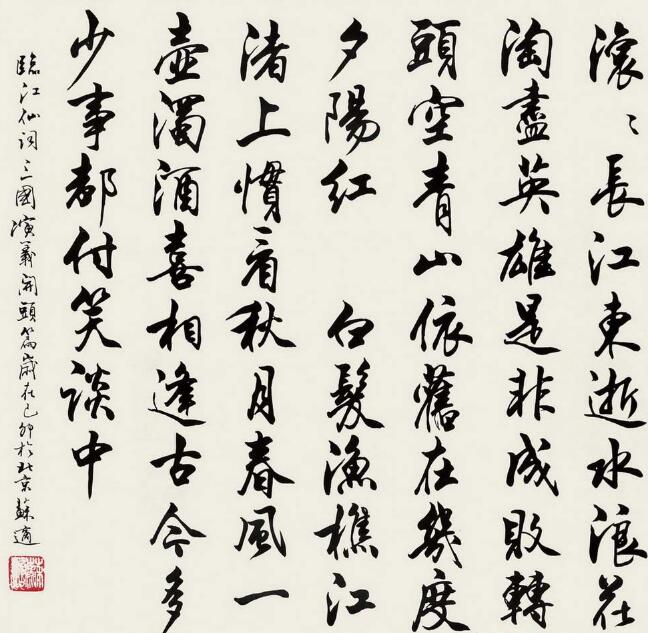 滾〻長江東逝水浪花
淘盡英雄是非成敗轉
頭空青山依舊在幾度
夕陽紅 白髮漁樵江
渚上慣看秋月春風一
壺濁酒喜相逢古今多
少事都付笑談中
臨江仙詞三國演義開頭篇歲在己卯於北京蘇適